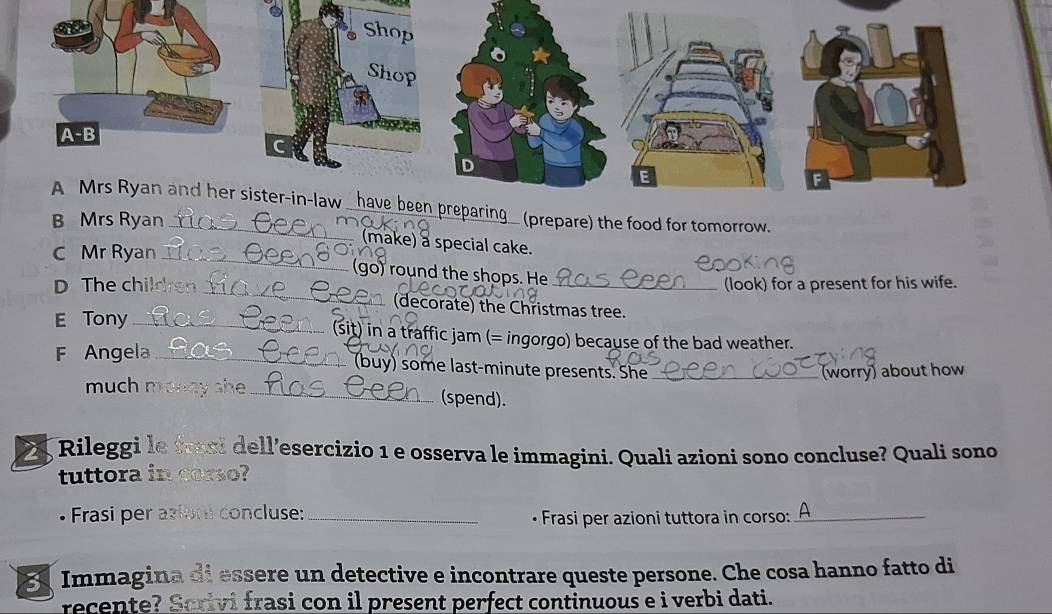 Shop
Shop
A-B
C
D
E
F
A Mrs Ryan and her sister-in-law have been preparing (prepare) the food for tomorrow.
B Mrs Ryan has been making (make) a special cake.
C Mr Ryan has been going (go) round the shops. He has been looking (look) for a present for his wife.
D The children have been decorating (decorate) the Christmas tree.
E Tony has been sitting (sit) in a traffic jam (= ingorgo) because of the bad weather.
F Angela has been buying (buy) some last-minute presents. She has been worrying (worry) about how
much money she has been (spend).
2 Rileggi le frasi dell'esercizio 1 e osserva le immagini. Quali azioni sono concluse? Quali sono
tuttora in corso?
• Frasi per azioni concluse:
• Frasi per azioni tuttora in corso: A
3 Immagina di essere un detective e incontrare queste persone. Che cosa hanno fatto di
recente? Scrivi frasi con il present perfect continuous e i verbi dati.